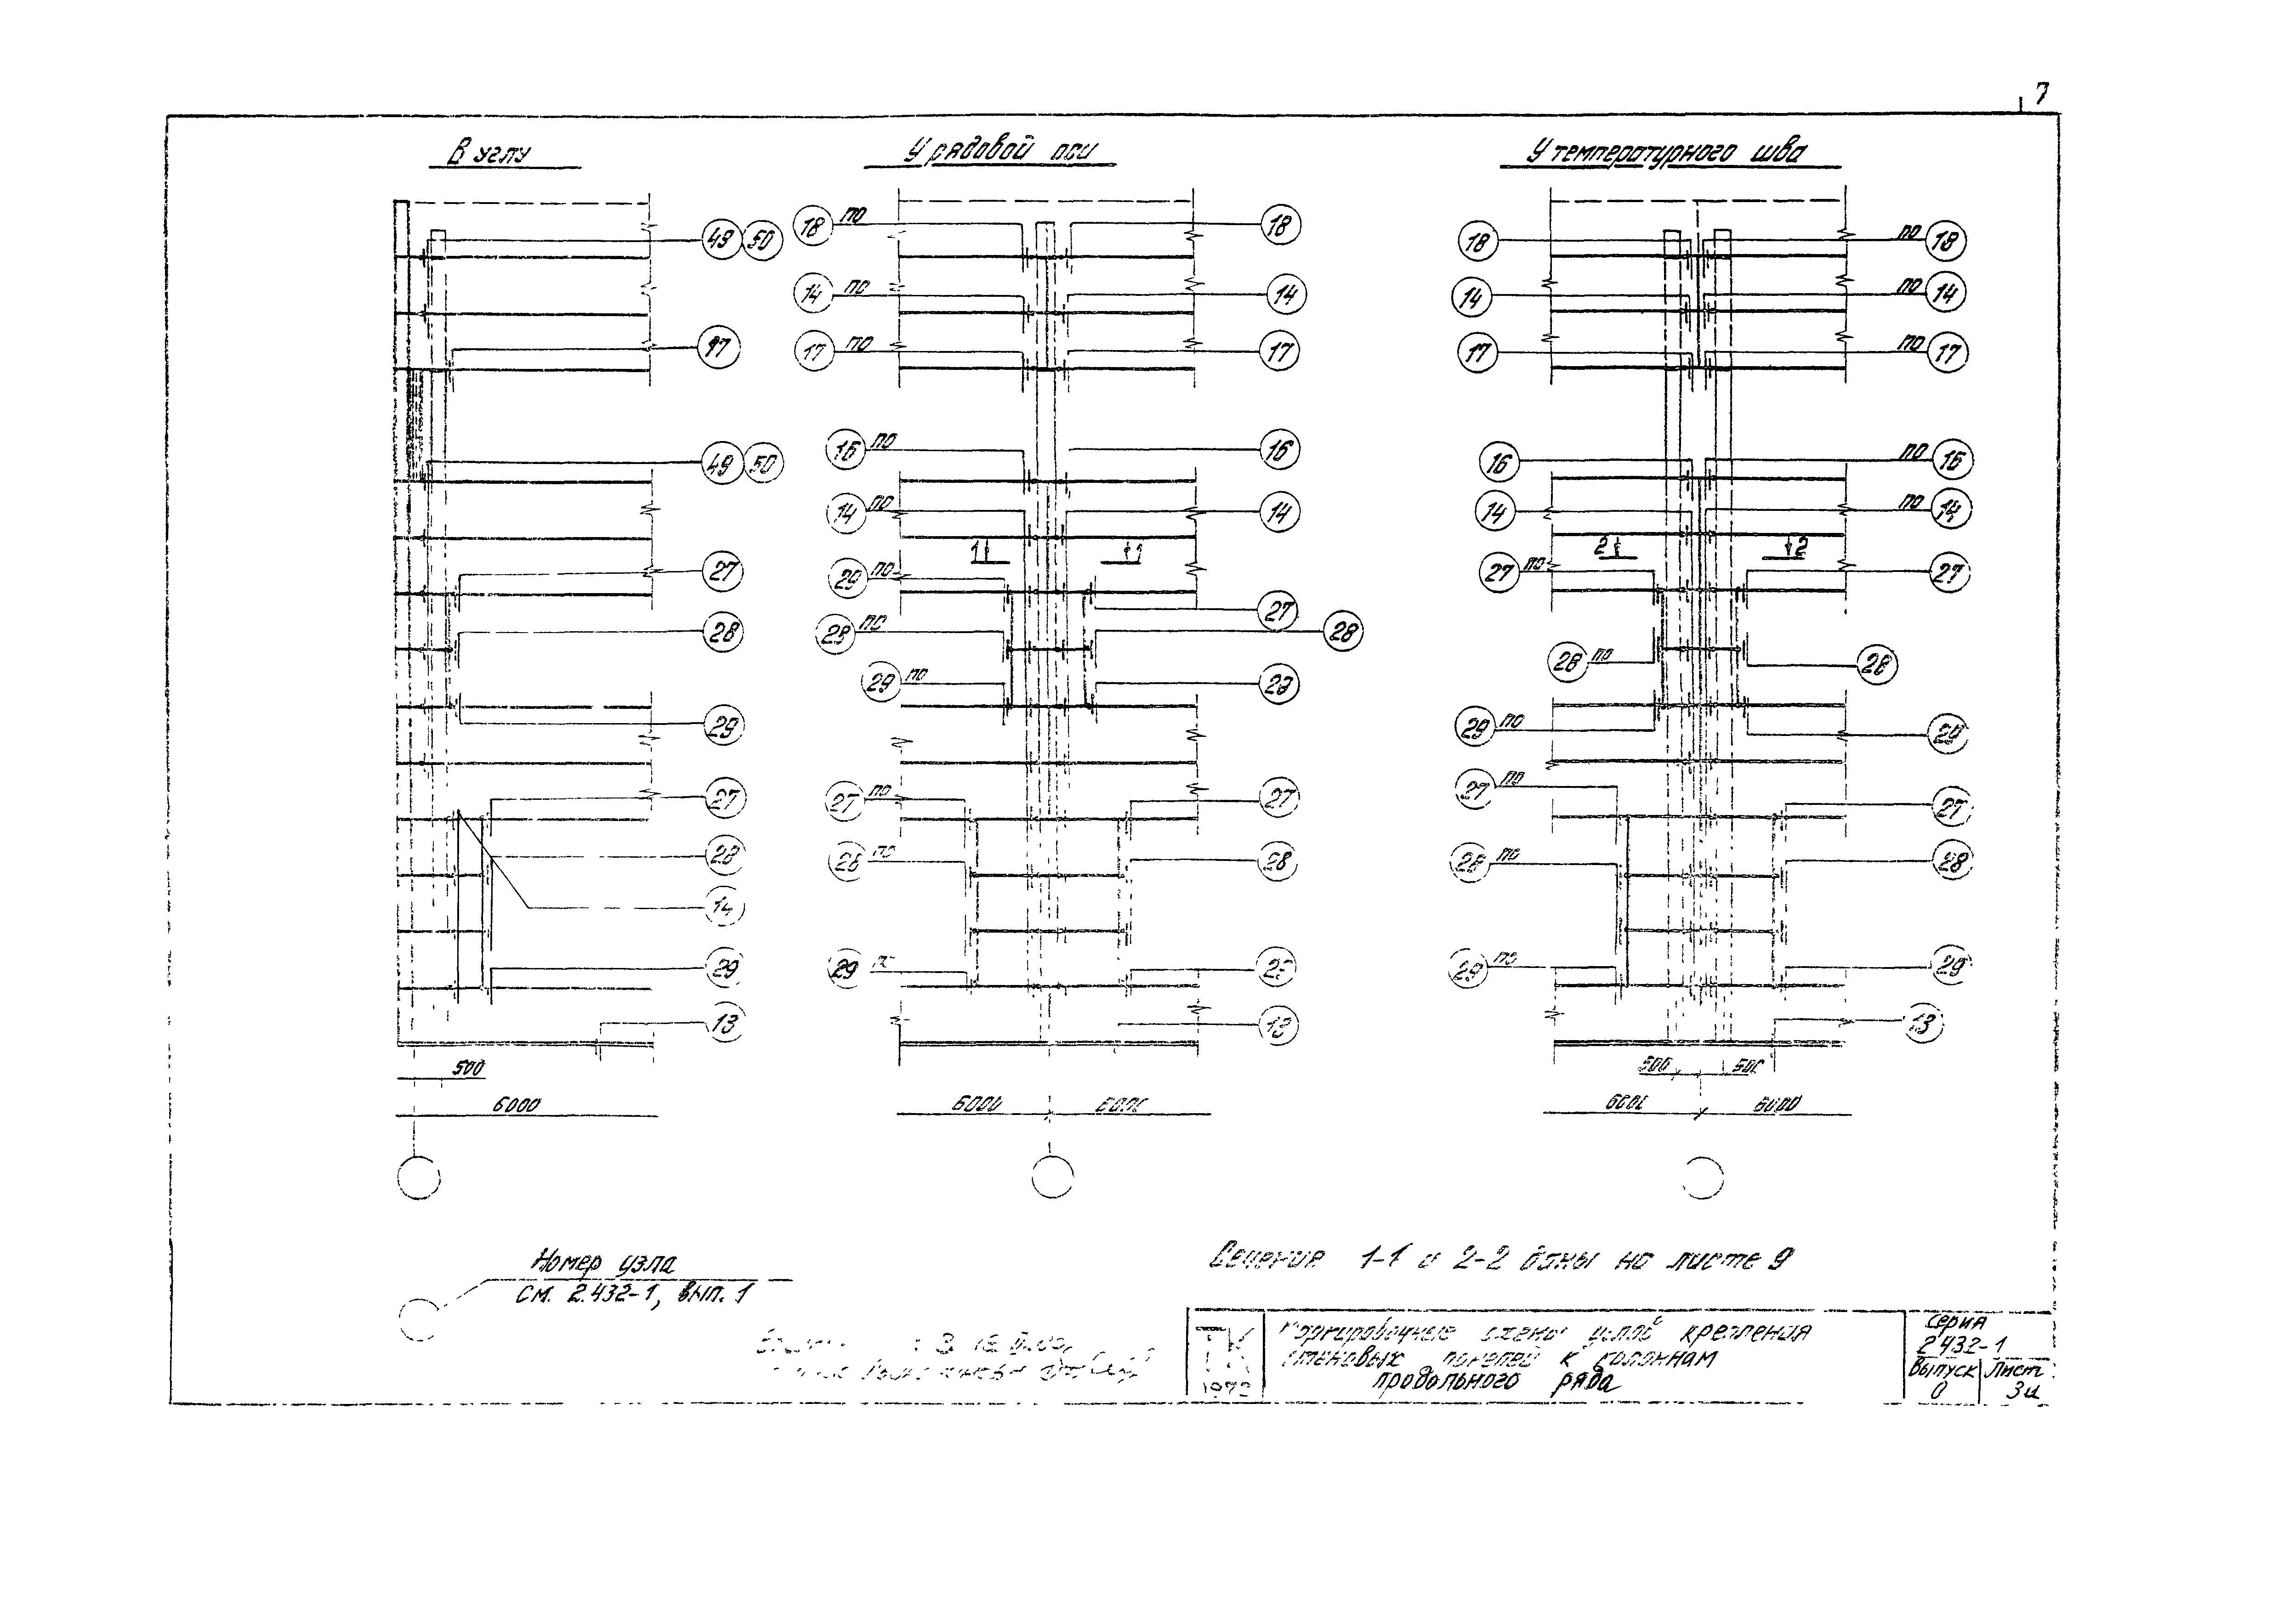 7
В углу
49 50
17
49 50
27
28
29
27
28
14
29
13
500
6000
У рядовой оси
18 по 18
14 по 14
17 по 17
16 по 16
14 по 14
1 1
29 по
27
28 по 28
29 по 29
27 по 27
28 по 28
29 по 29
13
6000 6000
У температурного шва
18 по 18
14 по 14
17 по 17
16 по 16
14 по 14
2 2
27 по 27
28 по 28
29 по 29
27 по 27
28 по 28
29 по 29
13
500 500
6000 6000
Номер узла
см. 2.432-1, вып. 1
Сечение 1-1 и 2-2 даны на листе 9
ТК
Маркировочные схемы узлов крепления
стеновых панелей к колоннам
продольного ряда
Серия
2.432-1
Выпуск Лист
0